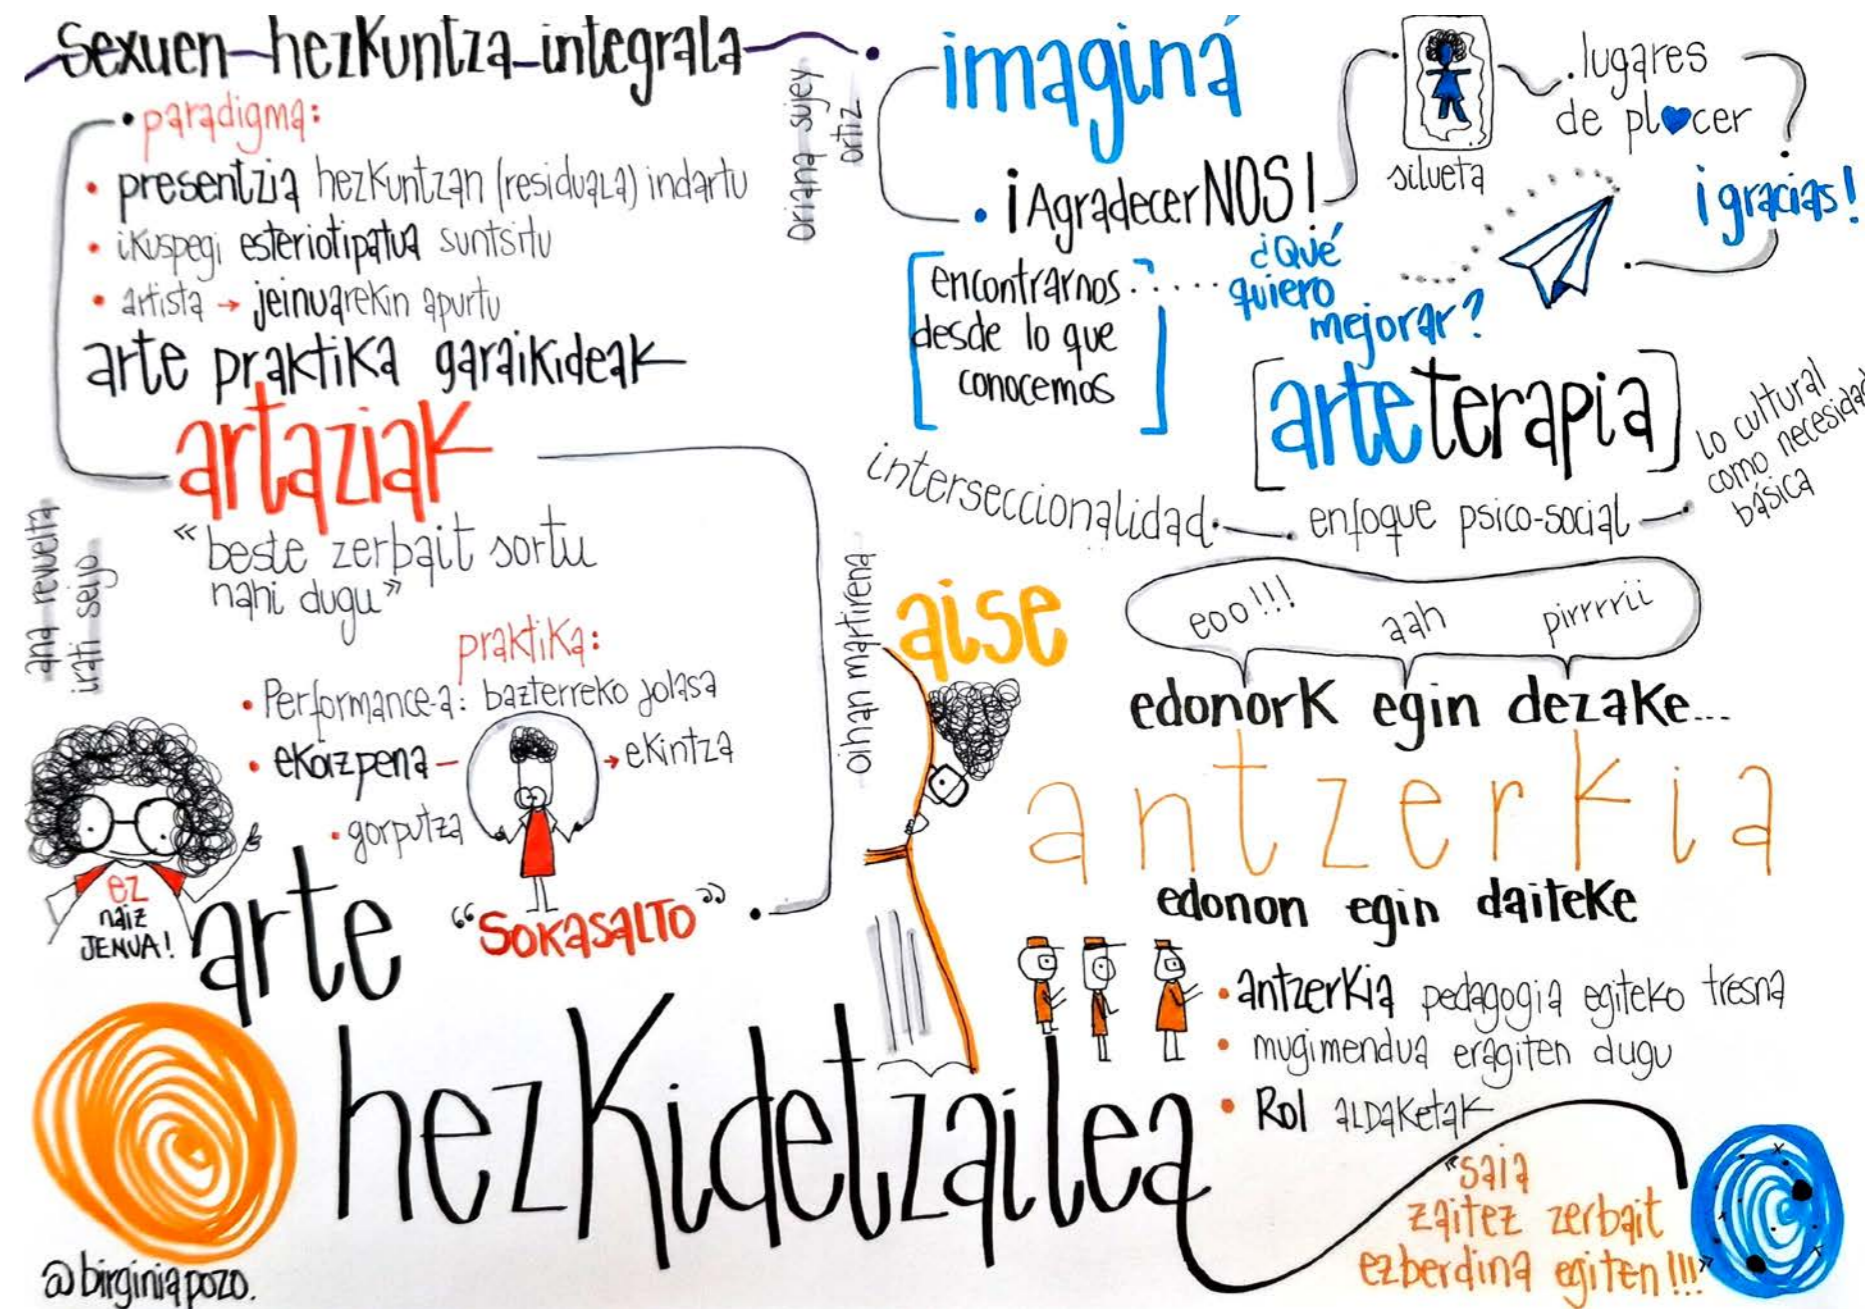 sexuen hezkuntza integrala
• paradigma:
• presentzia hezkuntzan (residuala) indartu
• ikuspegi esteriotipatua suntsitu
• artista → jeinuarekin apurtu
arte praktika garaikideak
artaziak
ana revuelta
irati seijo
«beste zerbait sortu
nahi dugu»
praktika:
• Performance-a: bazterreko jolasa
• ekoizpena – → ekintza
• gorputza
"SOKASALTO"
ez
naiz
JENUA!
oriana sujey
ortiz
imaginá
• ¡AgradecerNOS!
silueta
. lugares
de placer
¡gracias!
encontrarnos
desde lo que
conocemos
¿Qué
quiero
mejorar?
[arteterapia]
interseccionalidad
enfoque psico-social
lo cultural
como necesidad
básica
oihan martirena
aise
eoo!!! aah pirrrrii
edonork egin dezake...
antzerkia
edonon egin daiteke
• antzerkia pedagogia egiteko tresna
• mugimendua eragiten dugu
• Rol aldaketak
"saia
zaitez zerbait
ezberdina egiten!!!"
arte
hezkidetzailea
@birginiapozo.